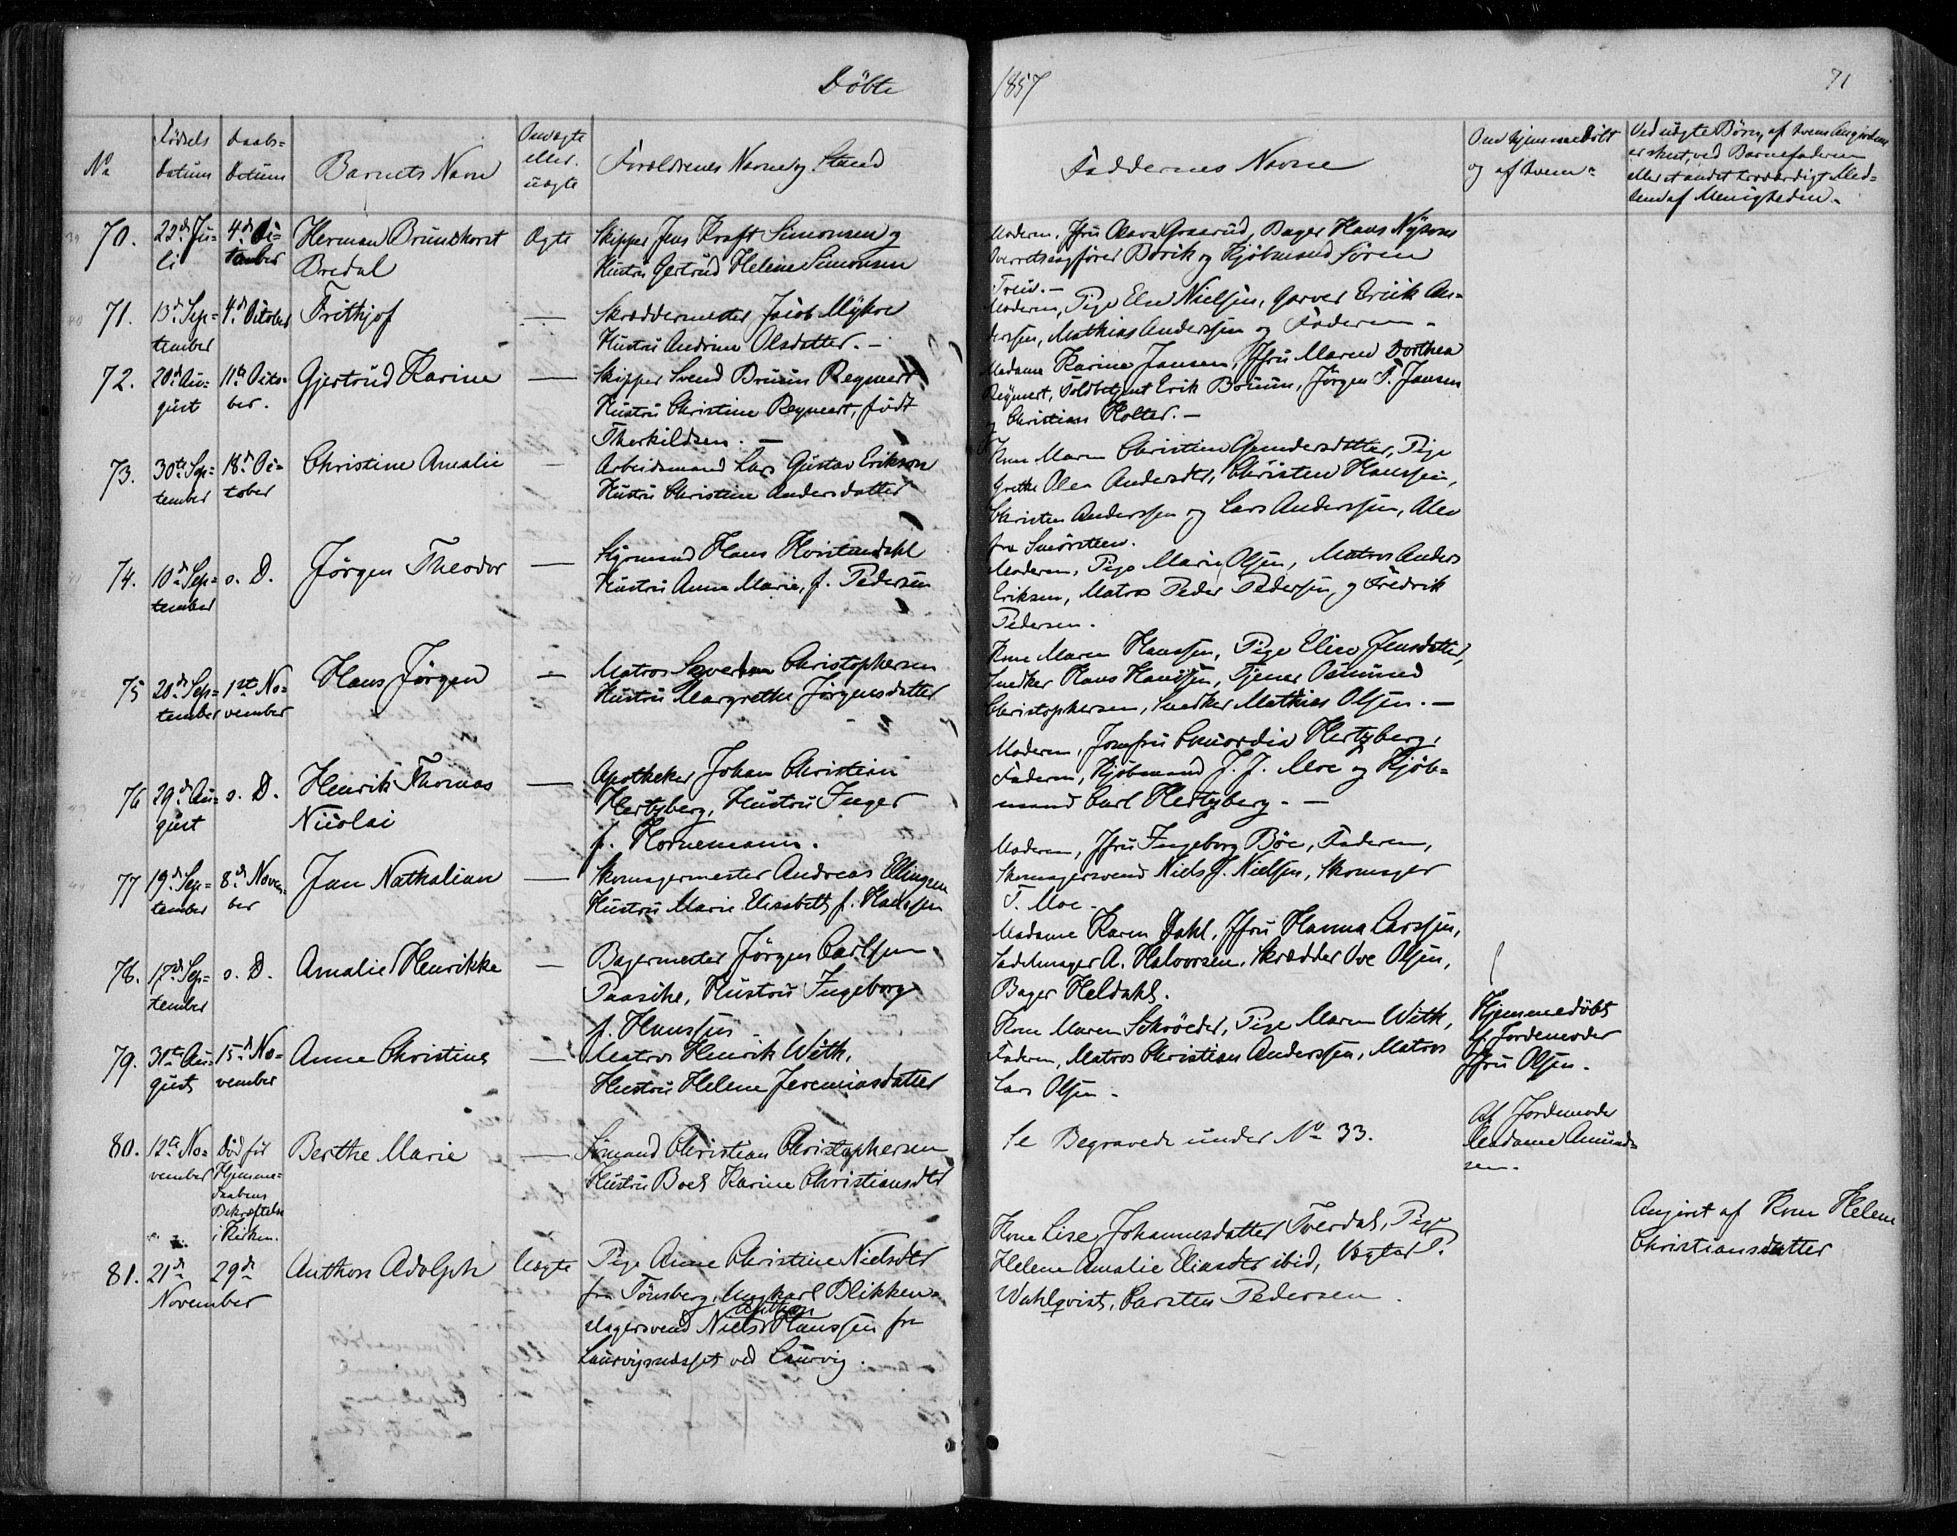 Döbte 1857 71
No
Födsels Datum
Daabs- Datum
Barnets Navn
Om ægte eller uægte
Forældrenes Navne og Stand
Faddernes Navne
Om hjemmedöbt og af hvem
Ved uægte Börn, af hvem Angivelsen er skeet, ved Barnefaderen eller et andet troværdigt Medlem af Menigheden.
70. 22d Ju- 4d Oc- Herman Brunchorst Ægte Skipper Jens Kraft Simonsen og
li tober Bredal Hustru Gertrud Helene Simonsen
Moderen, Jfru Clara Graarud, Bager Hans
Overretssagförer Börik og Kjöbmand Sören
Treid.-
71. 13d Sep- 4d October Frithjof — Skræddermester Jacob Mykre
tember Hustru Andrine Olsdatter. -
Moderen, Pige Else Nielsen, Garver Erick An-
derssen, Mathias Anderssen og Faderen -
72. 20d Au- 11te Octo- Gjertrud Karine — Skipper Svend Bruun Regnert
gust ber. Hustru Christine Regnert, född
Therkildsen. -
Madame Karine Jansen, Jfru Maren Dorthea
Regnert, Toldbetjent Erik Boruun, Jörgen T. Jansen
og Christian Holter. -
73. 30te Sep- 18d Oc- Christine Amalie — Arbeidsmand Lars Gustav Erikson
tember tober Hustru Christine Andersdatter
Kone Maren Christine Gundersdatter, Pige
Grethe Olea Andersdtr, Christen Hanssen,
Christen Anderssen og Lars Anderssen, Alle
fra Smörsteen.
74. 10d Sep- s. D. Jörgen Theodor — Styrmand Hans Kvistendahl
tember Hustru Anne Marie, f. Pedersen
Moderen, Pige Marie Olsen, Matros Anders
Eriksen, Matros Peder Pedersen, og Fredrik
Pedersen.
75 20d Sep- 1ste No- Hans Jörgen — Matros Christophersen
tember vember Hustru Margrethe Jörgensdatter
Kone Maren Hanssen, Pige Elise Jensdatter,
Snedker Hans Hanssen, Tjener Osmund
Christophersen, Snedker Mathias Olsen. -
76 29d Au- s. D. Henrik Thomas — Apotheker Johan Christian
gust Nicolai Hertzberg, Hustru Inger
f. Hornemann.
Moderen, Jomfru Concordia Hertzberg,
Faderen, Kjöbmand J. J. Moe og Kjöb-
mand Carl Hertzberg. -
77 19d Sep- 8d Novem- Jan Nathalian — Skomagermester Andreas Ellingsen
tember ber Hustru Marie Elisabeth f. Hanssen
Moderen, Jfru Ingeborg Böe, Faderen,
Skomagersvend Niels J. Nielsen, Skomager
T. Moe -
78. 17d Sep- s. D. Amalie Henrikke — Bagermester Jörgen Carlsen
tember Paasche, Hustru Ingeborg
f. Hanssen
Madame Karen Dahl, Jfru Hanna Larssen,
Sadelmager A. Halvorsen, Skrædder Ove Olsen,
Bager Heldahl.
79. 31te Au- 15d No- Anne Christine — Matros Henrik With,
gust vember Hustru Helene Jeremiasdatter
Kone Maren Schröeder, Pige Maren With,
Faderen, Matros Christian Anderssen, Matros
Lars Olsen -
Hjemmedöbt
af Jordemoder
Jfru Olsen -
80. 12te No- Död för Berthe Marie — Sömand Christian Christophersen
vember Hjemme- Hustru Boel Karine Christiansdtr
daabens
Bekræftelse
i Kirken.
Se Begravede under No 33.
Af Jordemoder
Madame Amund-
sen -
81. 21d 29d Anthon Adolph Uægte Pige Anne Christine Nielsdtr
November fra Tönsberg, Ungkarl Blikken-
slagersvend Niels Anthon Hanssen fra
Laurvigsædsset ved Laurvig.
Kone Lise Johannesdatter Tverdal, Pige
Helene Amalie Eliasdtr ibid, Vægter P.
Wahlqvist, Karsten Pedersen.
Angivet af Kone Helene
Christiansdatter